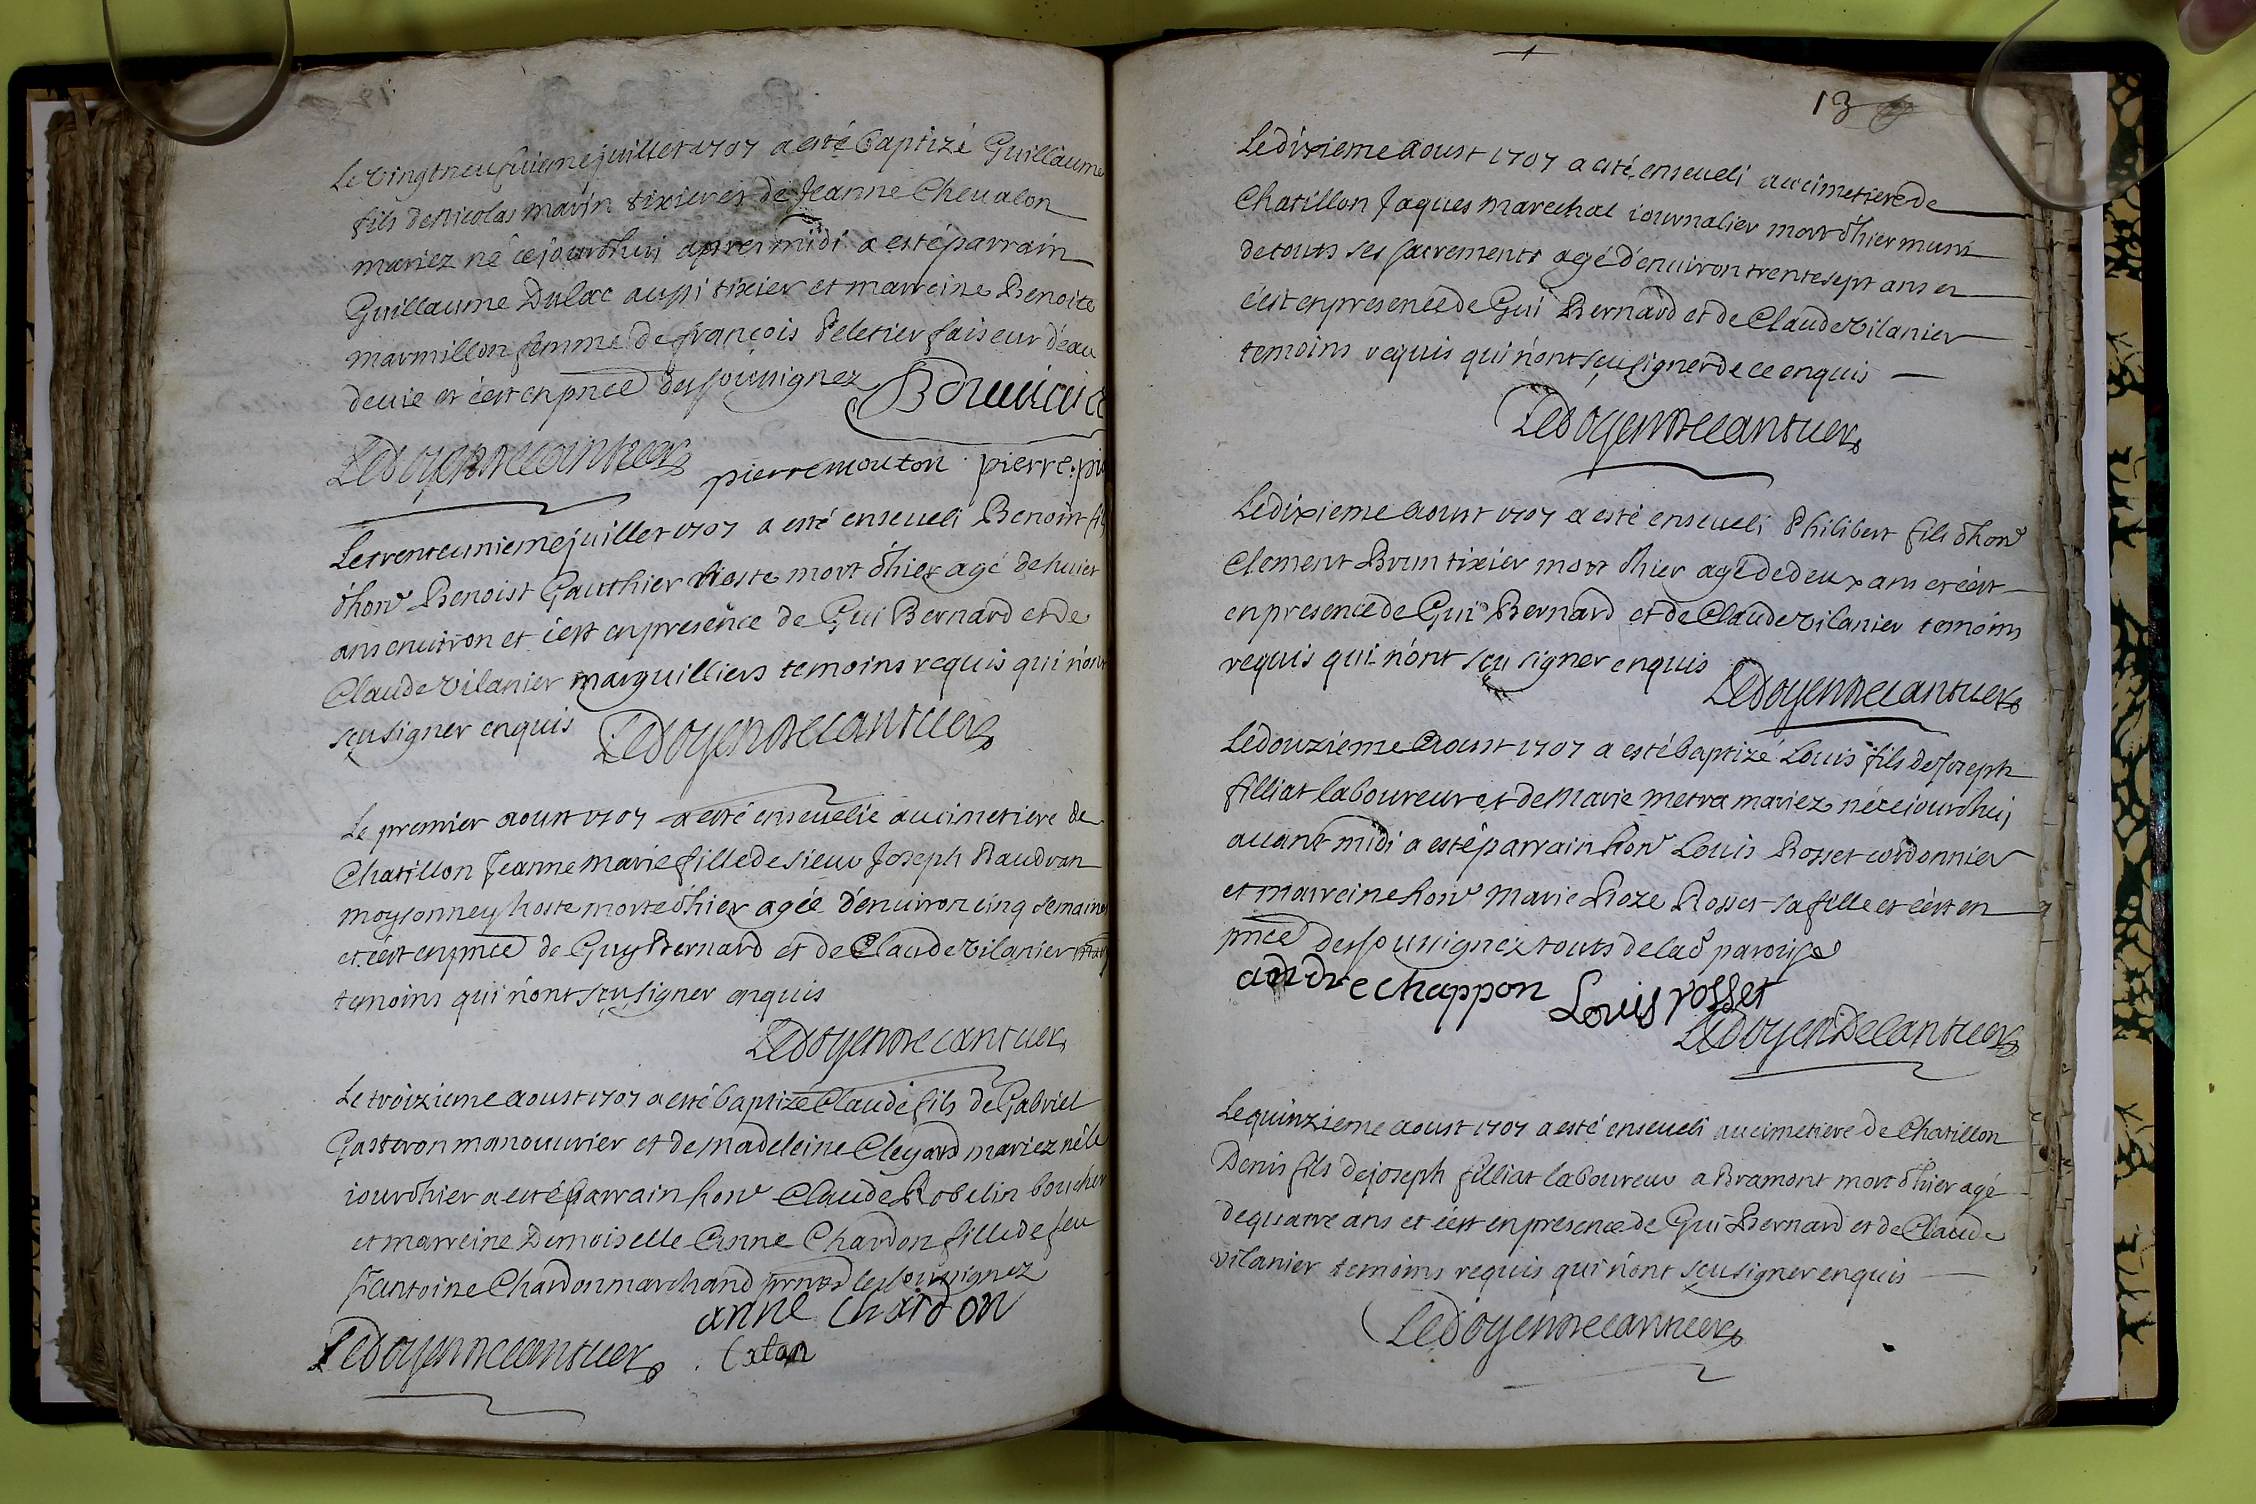 Le vingtneufuieme juillet 1707 a esté baptizé Guillaume
fils de Nicolas marin tixier et de Jeanne Cheualon
mariez né cejourdhuj apres midi a esté parrain
Guillaume Dulac aussi tixier et marreine Benoite
marmillon femme de françois Peletier faiseur déau
deuie et cést en pnce des soussignez
pierre mouton pierre
Le trenteunieme juillet 1707 a esté enseueli Benoit fils
dhon Benoist Gautthier hoste mort dhier agé de huict
ans enuiron et cést en presence de Gui Bernard et de
Claude vilanier marguilliers temoins requis qui nónt
sçu signer enquis Ledoyen decantuer
Le premier aoust 1707 a esté enseuelie au cimetiere de
Chatillon Jeanne Marie fille de sieur Joseph Baudran
moysonney hoste morte dhier agée dénuiron cinq semaines
et cést en pnce de Guy Bernard et de Claude vilanier
temoins qui nónt sçu signer enquis
Ledoyen decantuer
Le troizieme aoust 1707 a esté baptizé Claude fils de Gabriel
Gasteron manouurier et de Madeleine Cleyard mariez né le
jourdhier a esté parrain hon Claude Robelin boucher
et marreine Demoiselle Anne Chardon fille de feu
sr antoine Chardon marchand pnts les soussignez
anne chardon
Ledoyen decantuer Caton
13
Le dixieme Aoust 1707 a esté enseueli au cimetiere de
Chatillon Jaques marechal iournalier mort dhier muni
de touts ses sacrements agé dénuiron trentesept ans et
cést en presence de Gui Bernard et de Claude vilanier
temoins requis qui nónt sçu signer de ce enquis
Ledoyen decantuer
Le dixieme Aoust 1707 a esté enseueli Philibert fils dhon
Clement Brun tixier mort dhier agé de deux ans et cést
en presence de Gui Bernard et de Claude vilanier temoins
requis qui nónt sçu signer enquis
Ledoyen decantuer
Le douzieme Aoust 1707 a esté baptizé Louis fils de Joseph
filliat laboureur et de Marie metra mariez né cejourdhuj
auant midi a esté parrain hon Louis Rosset cordonnier
et marreine hon Marie Roze Rosset sa fille et cést en
pnce des soussignez touts de lad paroisse
andre chappon Louis rosset
Ledoyen Decantuer
Le quinzieme aoust 1707 a esté enseueli au cimetiere de Chatillon
Denis fils de joseph filliat laboureur a Bramont mort dhier agé
de quatre ans et cést en presence de Gui Bernard et de Claude
vilanier temoins requis qui nónt sçu signer enquis
Ledoyen decantuer